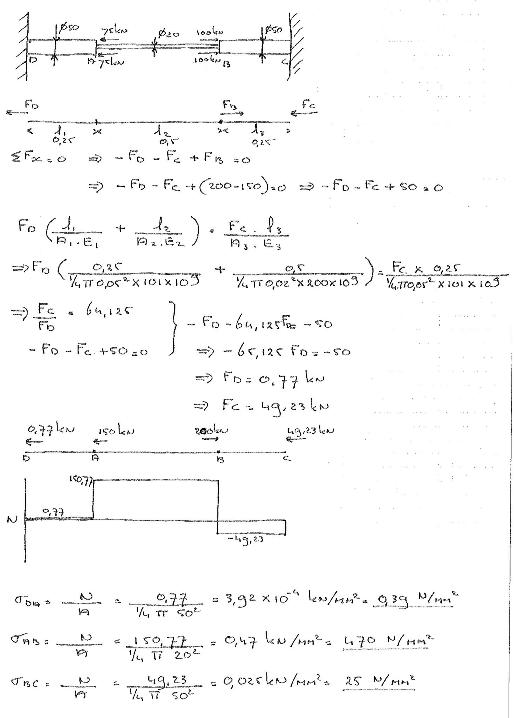 Ø50 75kN Ø20 100kN Ø50
D A 75kN 100kN B C
F_D F_B F_C
l₁ l₂ l₃
0,25 0,5 0,25
ΣFx=0 ⇒ -F_D - F_C + F_B = 0
⇒ -F_D - F_C + (200-150)=0 ⇒ -F_D - F_C + 50 = 0
F_D ( l₁ / A₁.E₁ + l₂ / A₂.E₂ ) = F_C . l₃ / A₃.E₃
⇒ F_D ( 0,25 / ¼π0,05²×101×10⁹ + 0,5 / ¼π0,02²×200×10⁹ ) = F_C × 0,25 / ¼π0,05²×101×10⁹
⇒ F_C / F_D = 64,125
-F_D - F_C + 50 = 0
-F_D - 64,125F_D = -50
⇒ -65,125 F_D = -50
⇒ F_D = 0,77 kN
⇒ F_C = 49,23 kN
0,77kN 150kN 200kN 49,23kN
D A B C
150,77
N 0,77
-49,23
σ_DA = N / A = 0,77 / ¼ π 50² = 3,92 × 10⁻⁴ kN/mm² = 0,39 N/mm²
σ_AB = N / A = 150,77 / ¼ π 20² = 0,47 kN/mm² = 470 N/mm²
σ_BC = N / A = 49,23 / ¼ π 50² = 0,025 kN/mm² = 25 N/mm²